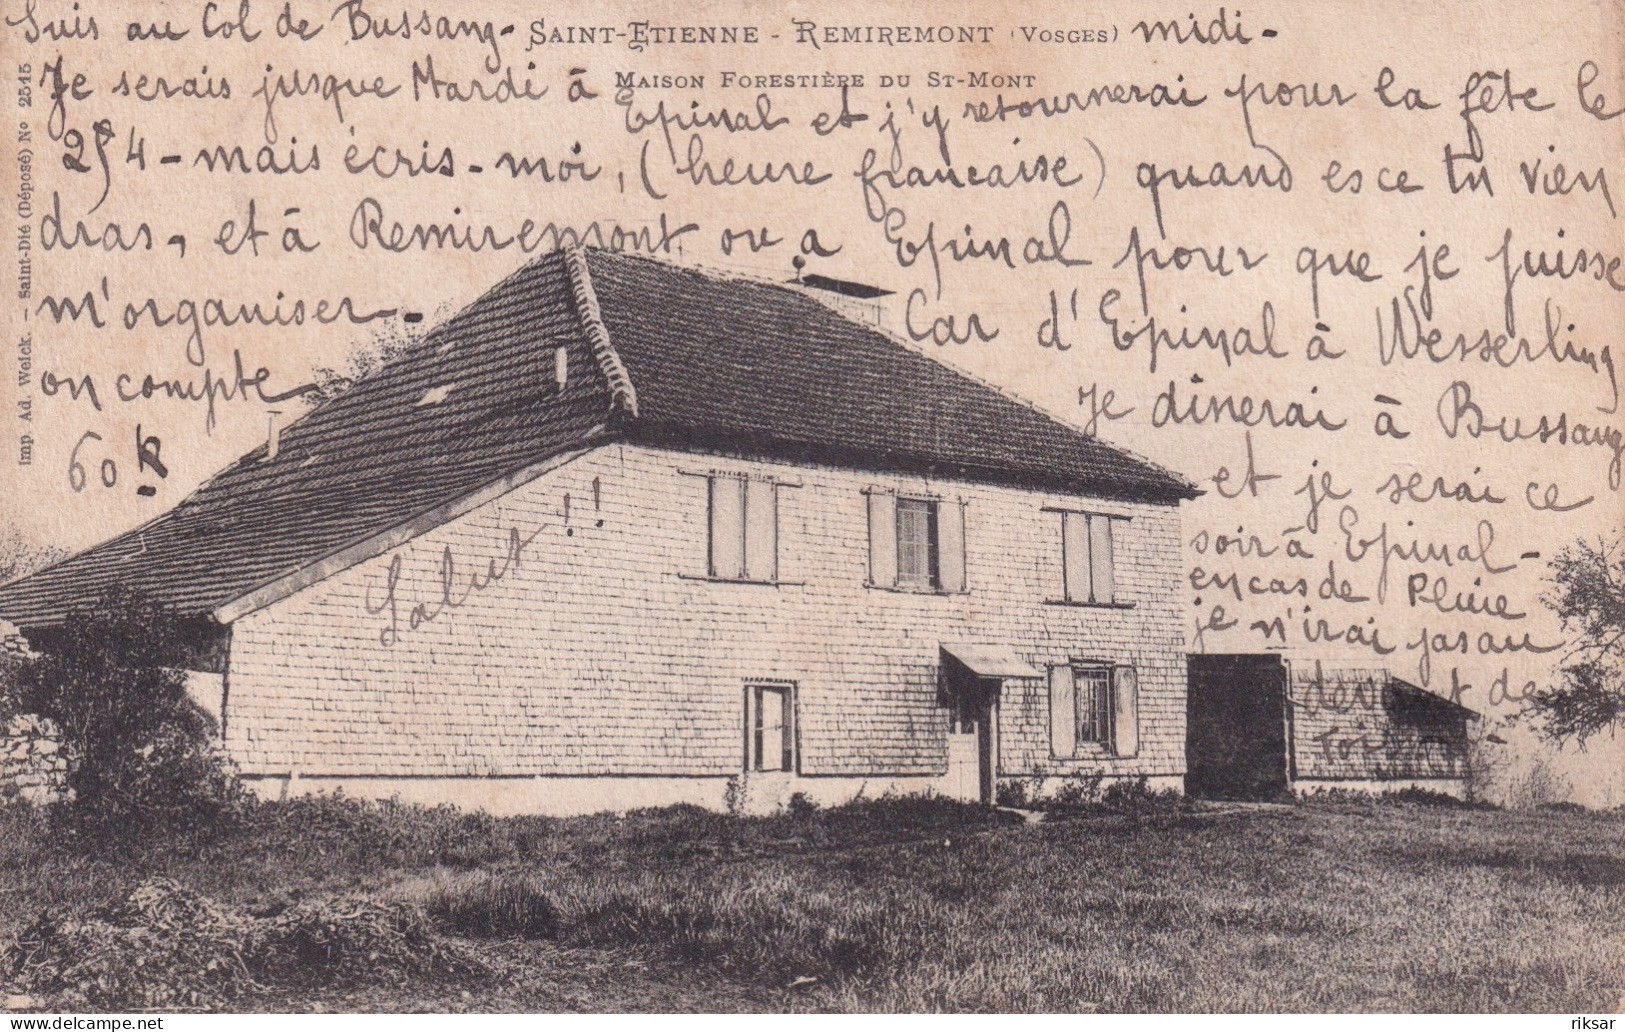 Suis au Col de Bussang - midi -
SAINT-ETIENNE - REMIREMONT (VOSGES)
MAISON FORESTIÈRE DU ST-MONT
Je serais jusque Mardi à
Epinal et j'y retournerai pour la fête le
25/4 - mais écris - moi, (heure francaise) quand es ce tu vien
dras, et à Remiremont ou a Epinal pour que je puisse
m'organiser - Car d'Epinal à Wesserling
on compte
60 k
Je dinerai à Bussang
et je serai ce
soir à Epinal -
en cas de Pluie
je n'irai pas au
devant de
toi -
Salut !!
Imp. Ad. Weick. - Saint-Dié (Déposé) No 2515
riksar